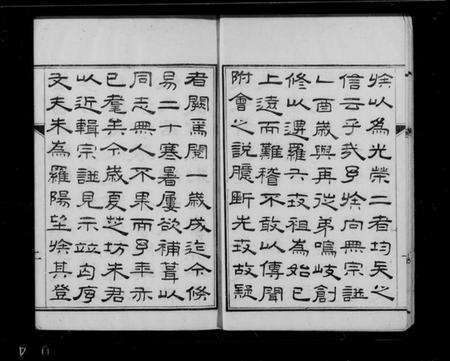 族以為光榮二者均失之
信云乎哉予族向無宗譜
乙酉歲與再從弟鳴岐創
修以遷羅六世祖為始已
上遠而難稽不敢以傳聞
附會之說臆斷先世故疑
者闕焉閱一歲成迄今倏
易二十寒暑屢欲補葺以
同志無人不果而予年亦
已耄矣今歲夏芝坊朱君
以近輯宗譜見示並匄序
文夫朱為羅陽望族其登